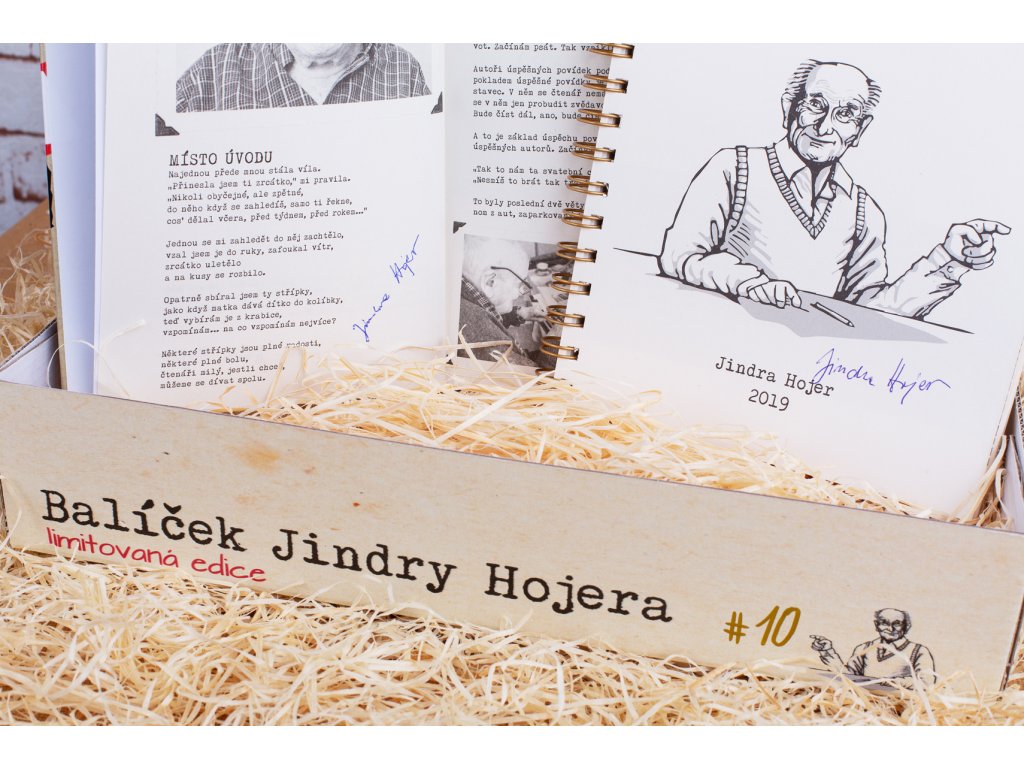 MÍSTO ÚVODU
Najednou přede mnou stála víla.
„Přinesla jsem ti zrcátko," mi pravila.
„Nikoli obyčejné, ale zpětné,
do něho když se zahledíš, samo ti řekne,
cos' dělal včera, před týdnem, před rokem..."
Jednou se mi zahledět do něj zachtělo,
vzal jsem je do ruky, zafoukal vítr,
zrcátko uletělo
a na kusy se rozbilo.
Opatrně sbíral jsem ty střípky,
jako když matka dává dítko do kolíbky,
teď vybírám je z krabice,
vzpomínám... na co vzpomínám nejvíce?
Některé střípky jsou plné radosti,
některé plné bolu,
čtenáři milý, jestli chceš,
můžeme se dívat spolu.
Jindra Hojer
vot. Začínám psát. Tak
Autoři úspěšných povídek
pokladem úspěšné povídky
stavec. V něm se čtenář
se v něm jen probudit
Bude číst dál, ano, bude
A to je základ úspěchu
úspěšných autorů.
„Tak to nám ta svatební
„Nesmíš to brát tak
To byly poslední dvě
nom z aut,
Jindra Hojer
2019
Jindra Hojer
Balíček Jindry Hojera
limitovaná edice
#10